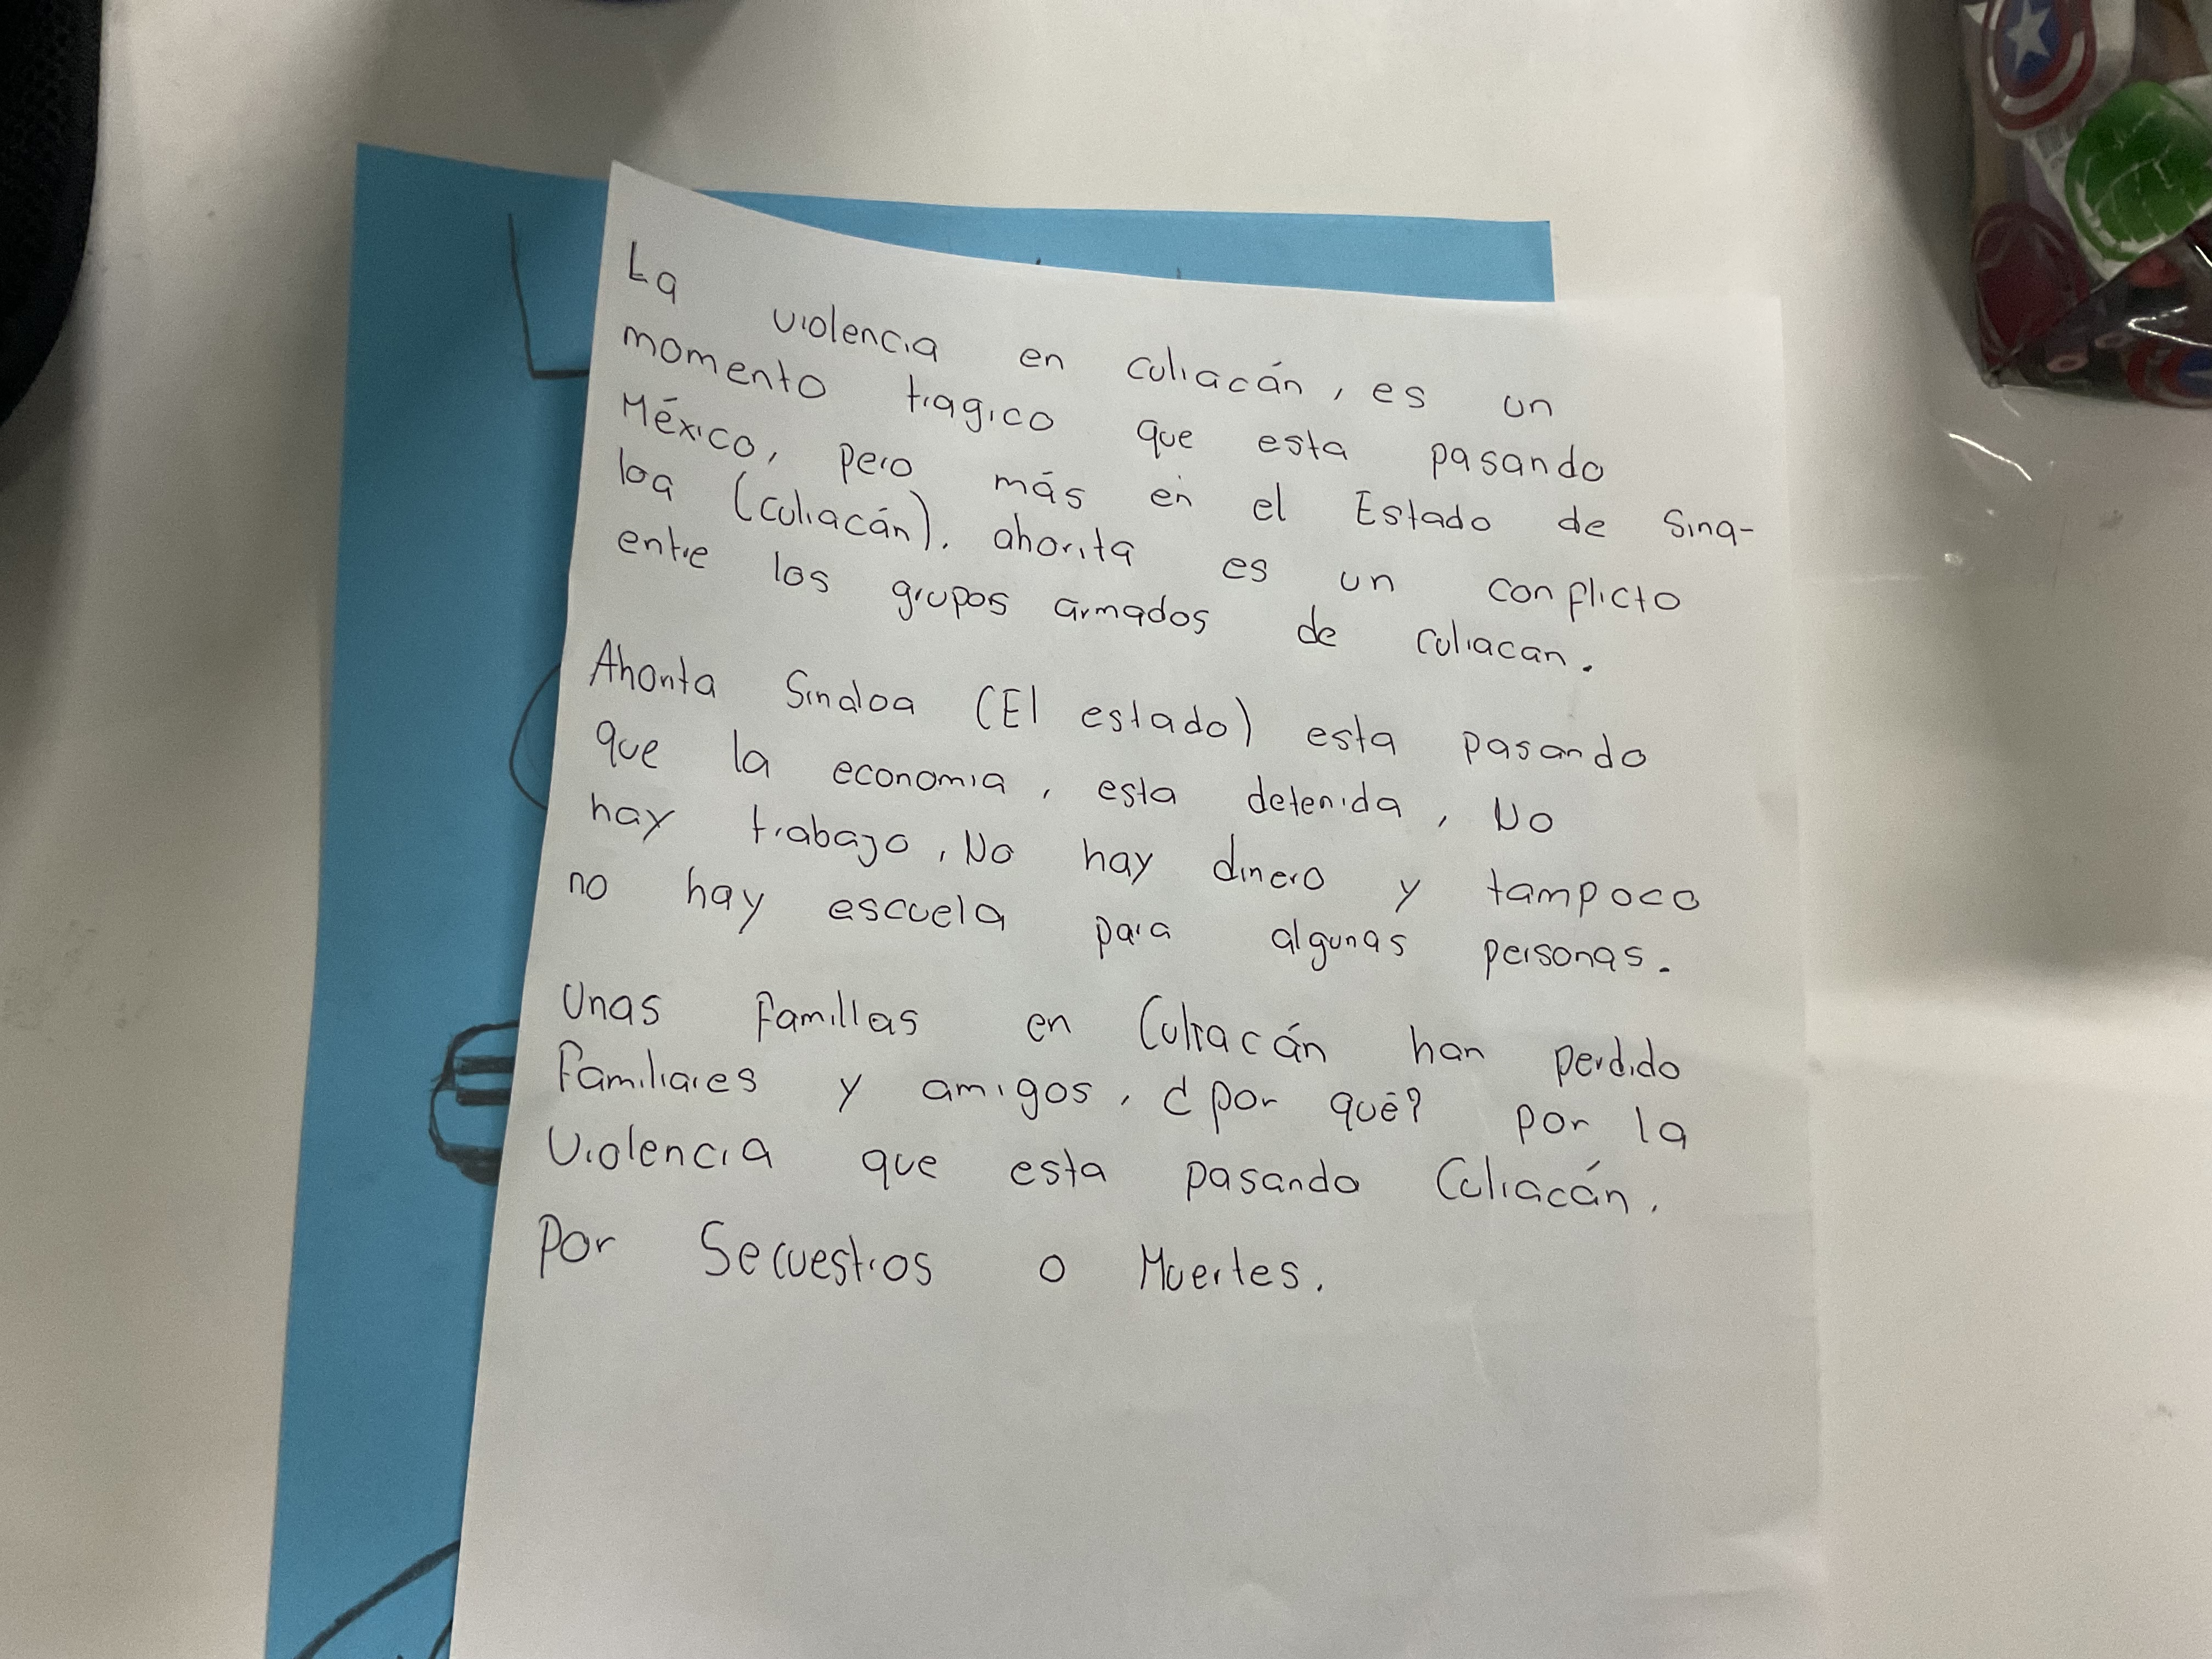 La violencia en culiacán, es un
momento tragico que esta pasando
México, pero más en el Estado de Sina-
loa (culiacán). ahorita es un conflicto
entre los grupos armados de culiacan.
Ahorita Sinaloa (El estado) esta pasando
que la economia, esta detenida, No
hay trabajo, No hay dinero y tampoco
no hay escuela para algunas personas.
Unas famillas en Culiacán han perdido
familiares y amigos, ¿por qué? por la
violencia que esta pasando Culiacán.
Por Secuestros o Muertes.